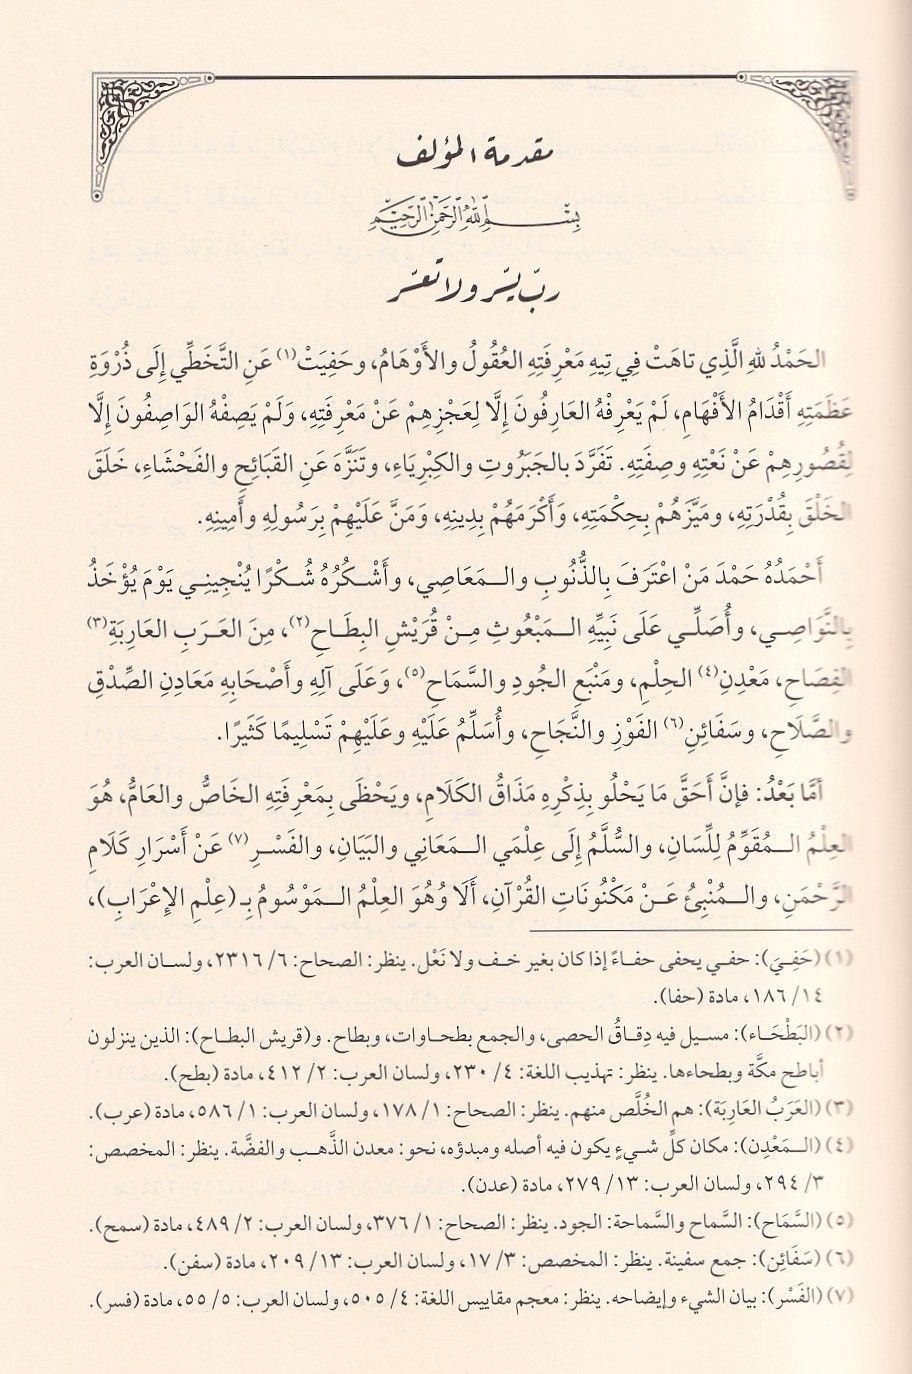 مقدمة المؤلف
بِسْمِ اللهِ الرَّحْمَنِ الرَّحِيمِ
ربّ يسّر ولا تعسّر
الحَمْدُ للهِ الَّذِي تاهَتْ فِي تِيهِ مَعْرِفَتِهِ العُقُولُ والأَوْهَامُ، وحَفِيَتْ(١) عَنِ التَّخَطِّي إِلَى ذُرْوَةِ
عَظَمَتِهِ أَقْدَامُ الأَفْهَامِ، لَمْ يَعْرِفْهُ العَارِفُونَ إِلَّا لِعَجْزِهِمْ عَنْ مَعْرِفَتِهِ، وَلَمْ يَصِفْهُ الوَاصِفُونَ إِلَّا
لِقُصُورِهِمْ عَنْ نَعْتِهِ وصِفَتِهِ. تَفَرَّدَ بالجَبَرُوتِ والكِبْرِيَاءِ، وتَنَزَّهَ عَنِ القَبَائِحِ والفَحْشَاءِ، خَلَقَ
الخَلْقَ بِقُدْرَتِهِ، ومَيَّزَهُمْ بِحِكْمَتِهِ، وَأَكْرَمَهُمْ بِدِينِهِ، وَمَنَّ عَلَيْهِمْ بِرَسُولِهِ وأَمِينِهِ.
أَحْمَدُهُ حَمْدَ مَنْ اعْتَرَفَ بِالذُّنُوبِ والـمَعَاصِي، وأَشْكُرُهُ شُكْرًا يُنْجِينِي يَوْمَ يُؤْخَذُ
بِالنَّوَاصِي، وأُصَلِّي عَلَى نَبِيِّهِ الـمَبْعُوثِ مِنْ قُرَيْشِ البِطَاحِ(٢)، مِنَ العَرَبِ العَارِبَةِ(٣)
الفِصَاحِ، مَعْدِنِ(٤) الحِلْمِ، ومَنْبَعِ الجُودِ والسَّمَاحِ(٥)، وَعَلَى آلِهِ وأَصْحَابِهِ مَعَادِنِ الصِّدْقِ
والصَّلَاحِ، وسَفَائِنِ(٦) الفَوْزِ والنَّجَاحِ، وأُسَلِّمُ عَلَيْهِ وعَلَيْهِمْ تَسْلِيمًا كَثَيرًا.
أمَّا بَعْدُ: فإنَّ أَحَقَّ مَا يَحْلُو بِذِكْرِهِ مَذَاقُ الكَلَامِ، ويَحْظَى بِمَعْرِفَتِهِ الخَاصُّ والعَامُّ، هُوَ
العِلْمُ الـمُقَوِّمُ لِلِّسَانِ، والسُّلَّمُ إِلَى عِلْمَي الـمَعَانِي والبَيَانِ، والفَسْرِ(٧) عَنْ أَسْرَارِ كَلَامِ
الرَّحْمَنِ، والـمُنْبِئُ عَنْ مَكْنُونَاتِ القُرْآنِ، أَلَا وهُوَ العِلْمُ الـمَوْسُومُ بـِ (عِلْمِ الإِعْرَابِ)،
(١) (حَفِيَ): حفي يحفى حفاءً إذا كان بغير خف ولا نَعْل. ينظر: الصحاح: ٦/ ٢٣١٦، ولسان العرب:
١٤/ ١٨٦، مادة (حفا).
(٢) (البَطْحَاء): مسيل فيه دِقاقُ الحصى، والجمع بطحاوات، وبطاح. و(قريش البطاح): الذين ينزلون
أباطح مكَّة وبطحاءها. ينظر: تهذيب اللغة: ٤/ ٢٣٠، ولسان العرب: ٢/ ٤١٢، مادة (بطح).
(٣) (العَرَبُ العَارِبَة): هم الخُلَّص منهم. ينظر: الصحاح: ١/ ١٧٨، ولسان العرب: ١/ ٥٨٦، مادة (عرب).
(٤) (الـمَعْدِن): مكان كلِّ شيءٍ يكون فيه أصله ومبدؤه، نحو: معدن الذَّهب والفضَّة. ينظر: المخصص:
٣/ ٢٩٤، ولسان العرب: ١٣/ ٢٧٩، مادة (عدن).
(٥) (السَّمَاح): السَّماح والسَّماحة: الجود. ينظر: الصحاح: ١/ ٣٧٦، ولسان العرب: ٢/ ٤٨٩، مادة (سمح).
(٦) (سَفَائِن): جمع سفينة. ينظر: المخصص: ٣/ ١٧، ولسان العرب: ١٣/ ٢٠٩، مادة (سفن).
(٧) (الفَسْر): بيان الشيء وإيضاحه. ينظر: معجم مقاييس اللغة: ٤/ ٥٠٥، ولسان العرب: ٥/ ٥٥، مادة (فسر).